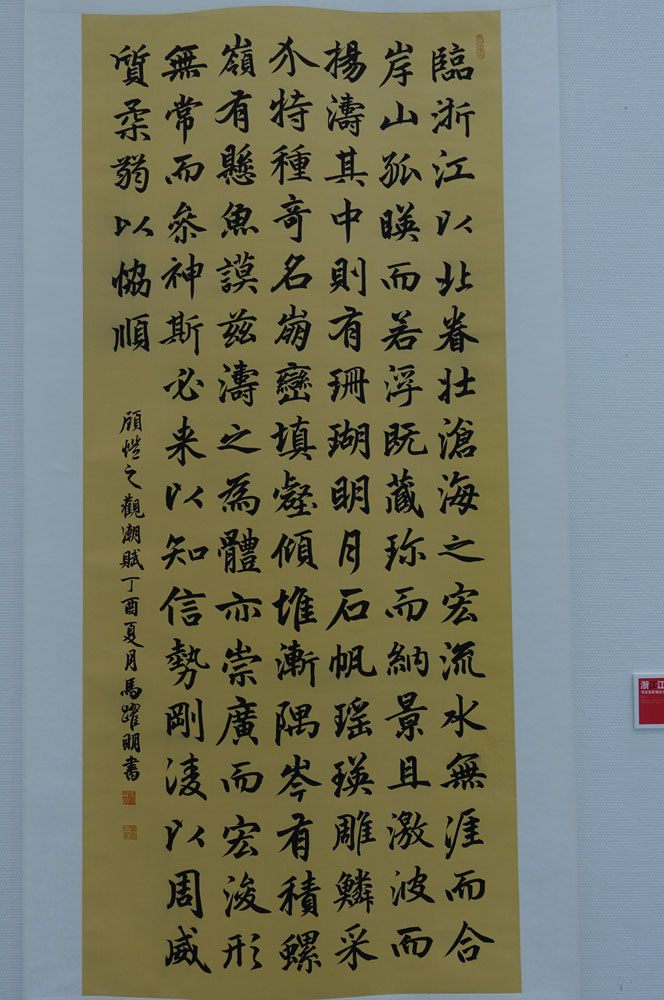 臨浙江以北眷壯滄海之宏流水無涯而合
岸山孤暎而若浮既藏珎而納景且激波而
揚濤其中則有珊瑚明月石帆瑶瑛雕鱗采
介特種奇名崩巒填壑傾堆漸隅岑有積螺
嶺有懸魚謨兹濤之為體亦崇廣而宏浚形
無常而叅神斯必来以知信勢剛淩以周威
質柔弱以恊順
顧愷之觀潮賦丁酉夏月馬躍明書
浙江